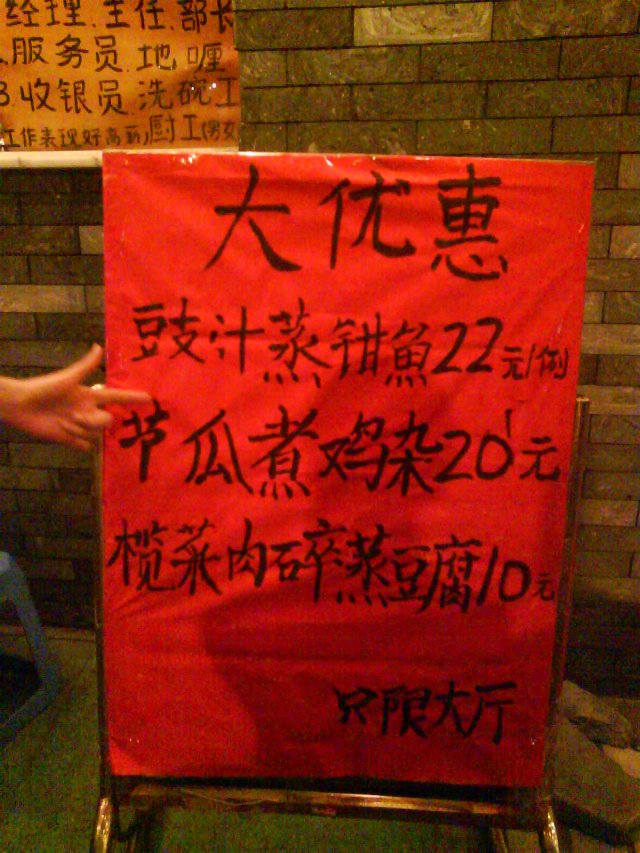 经理.主任.部长
服务员.地喱
收银员.洗碗工
工作表现好高薪)厨工(男女
大优惠
豉汁蒸钳魚22元/例
节瓜煮鸡杂20元
榄菜肉碎蒸豆腐10元
只限大厅